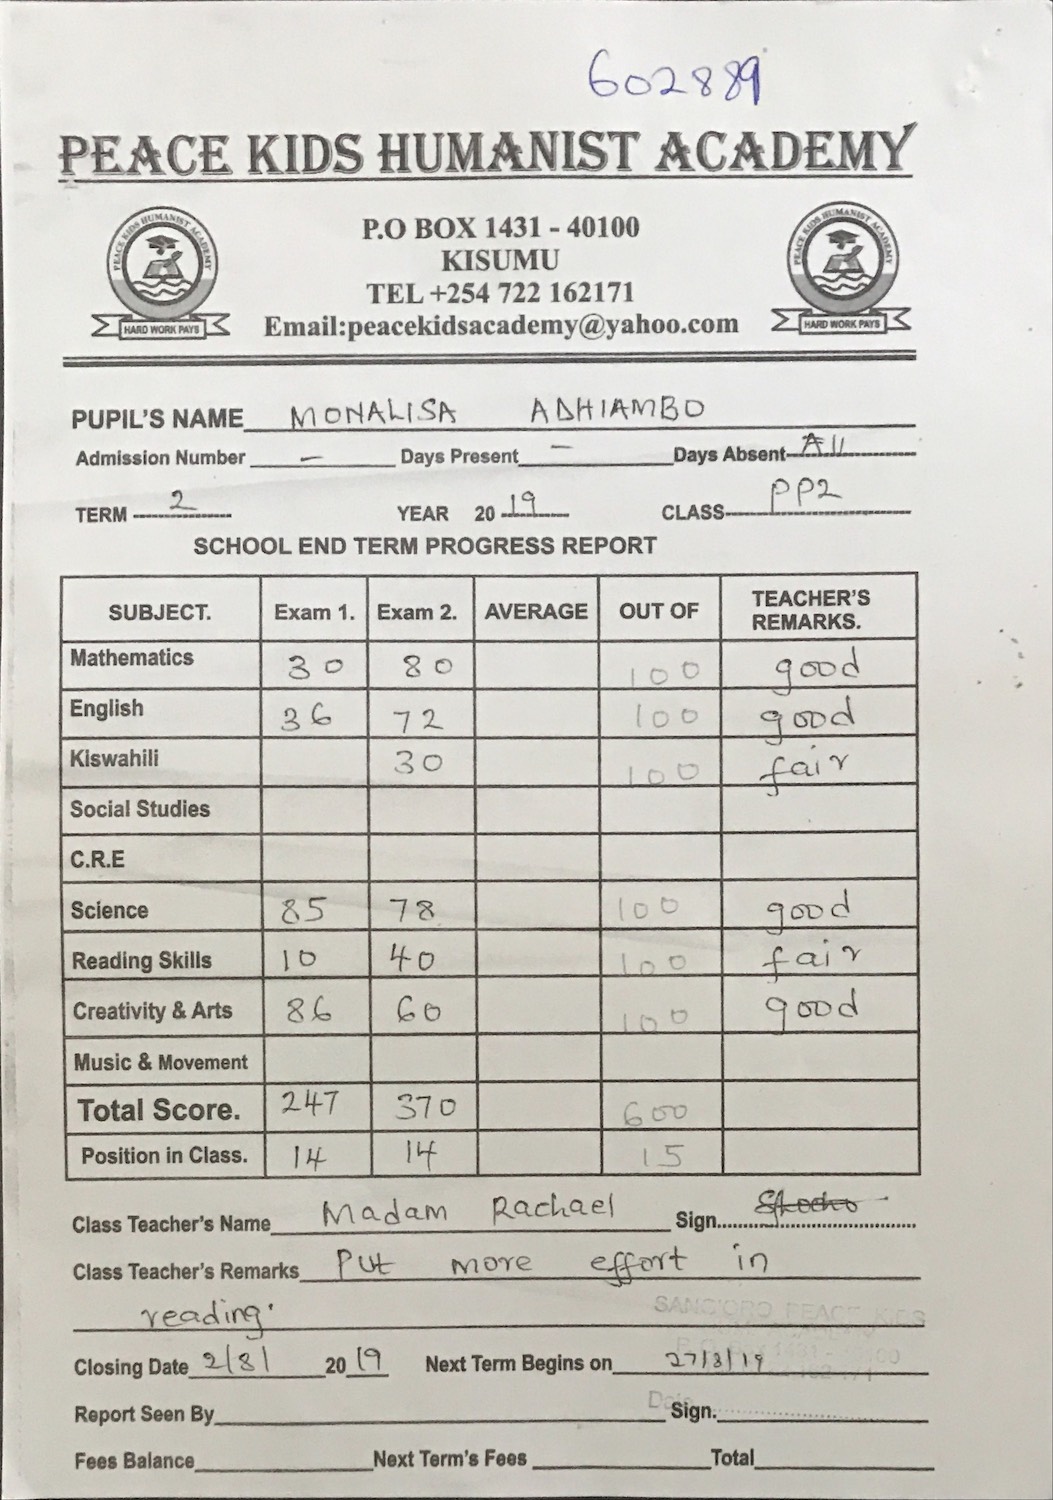 602889
PEACE KIDS HUMANIST ACADEMY
PEACE KIDS HUMANIST ACADEMY
HARD WORK PAYS
P.O BOX 1431 - 40100
KISUMU
TEL +254 722 162171
Email:peacekidsacademy@yahoo.com
PEACE KIDS HUMANIST ACADEMY
HARD WORK PAYS
PUPIL'S NAME MONALISA ADHIAMBO
Admission Number – Days Present – Days Absent All
TERM 2 YEAR 2019 CLASS PP2
SCHOOL END TERM PROGRESS REPORT
SUBJECT. Exam 1. Exam 2. AVERAGE OUT OF TEACHER'S REMARKS.
Mathematics 30 80 100 good
English 36 72 100 good
Kiswahili 30 100 fair
Social Studies
C.R.E
Science 85 78 100 good
Reading Skills 10 40 100 fair
Creativity & Arts 86 60 100 good
Music & Movement
Total Score. 247 370 600
Position in Class. 14 14 15
Class Teacher's Name Madam Rachael Sign.
Class Teacher's Remarks Put more effort in
reading.
Closing Date 2/8/ 2019 Next Term Begins on 27/8/19
Report Seen By Sign.
Fees Balance Next Term's Fees Total